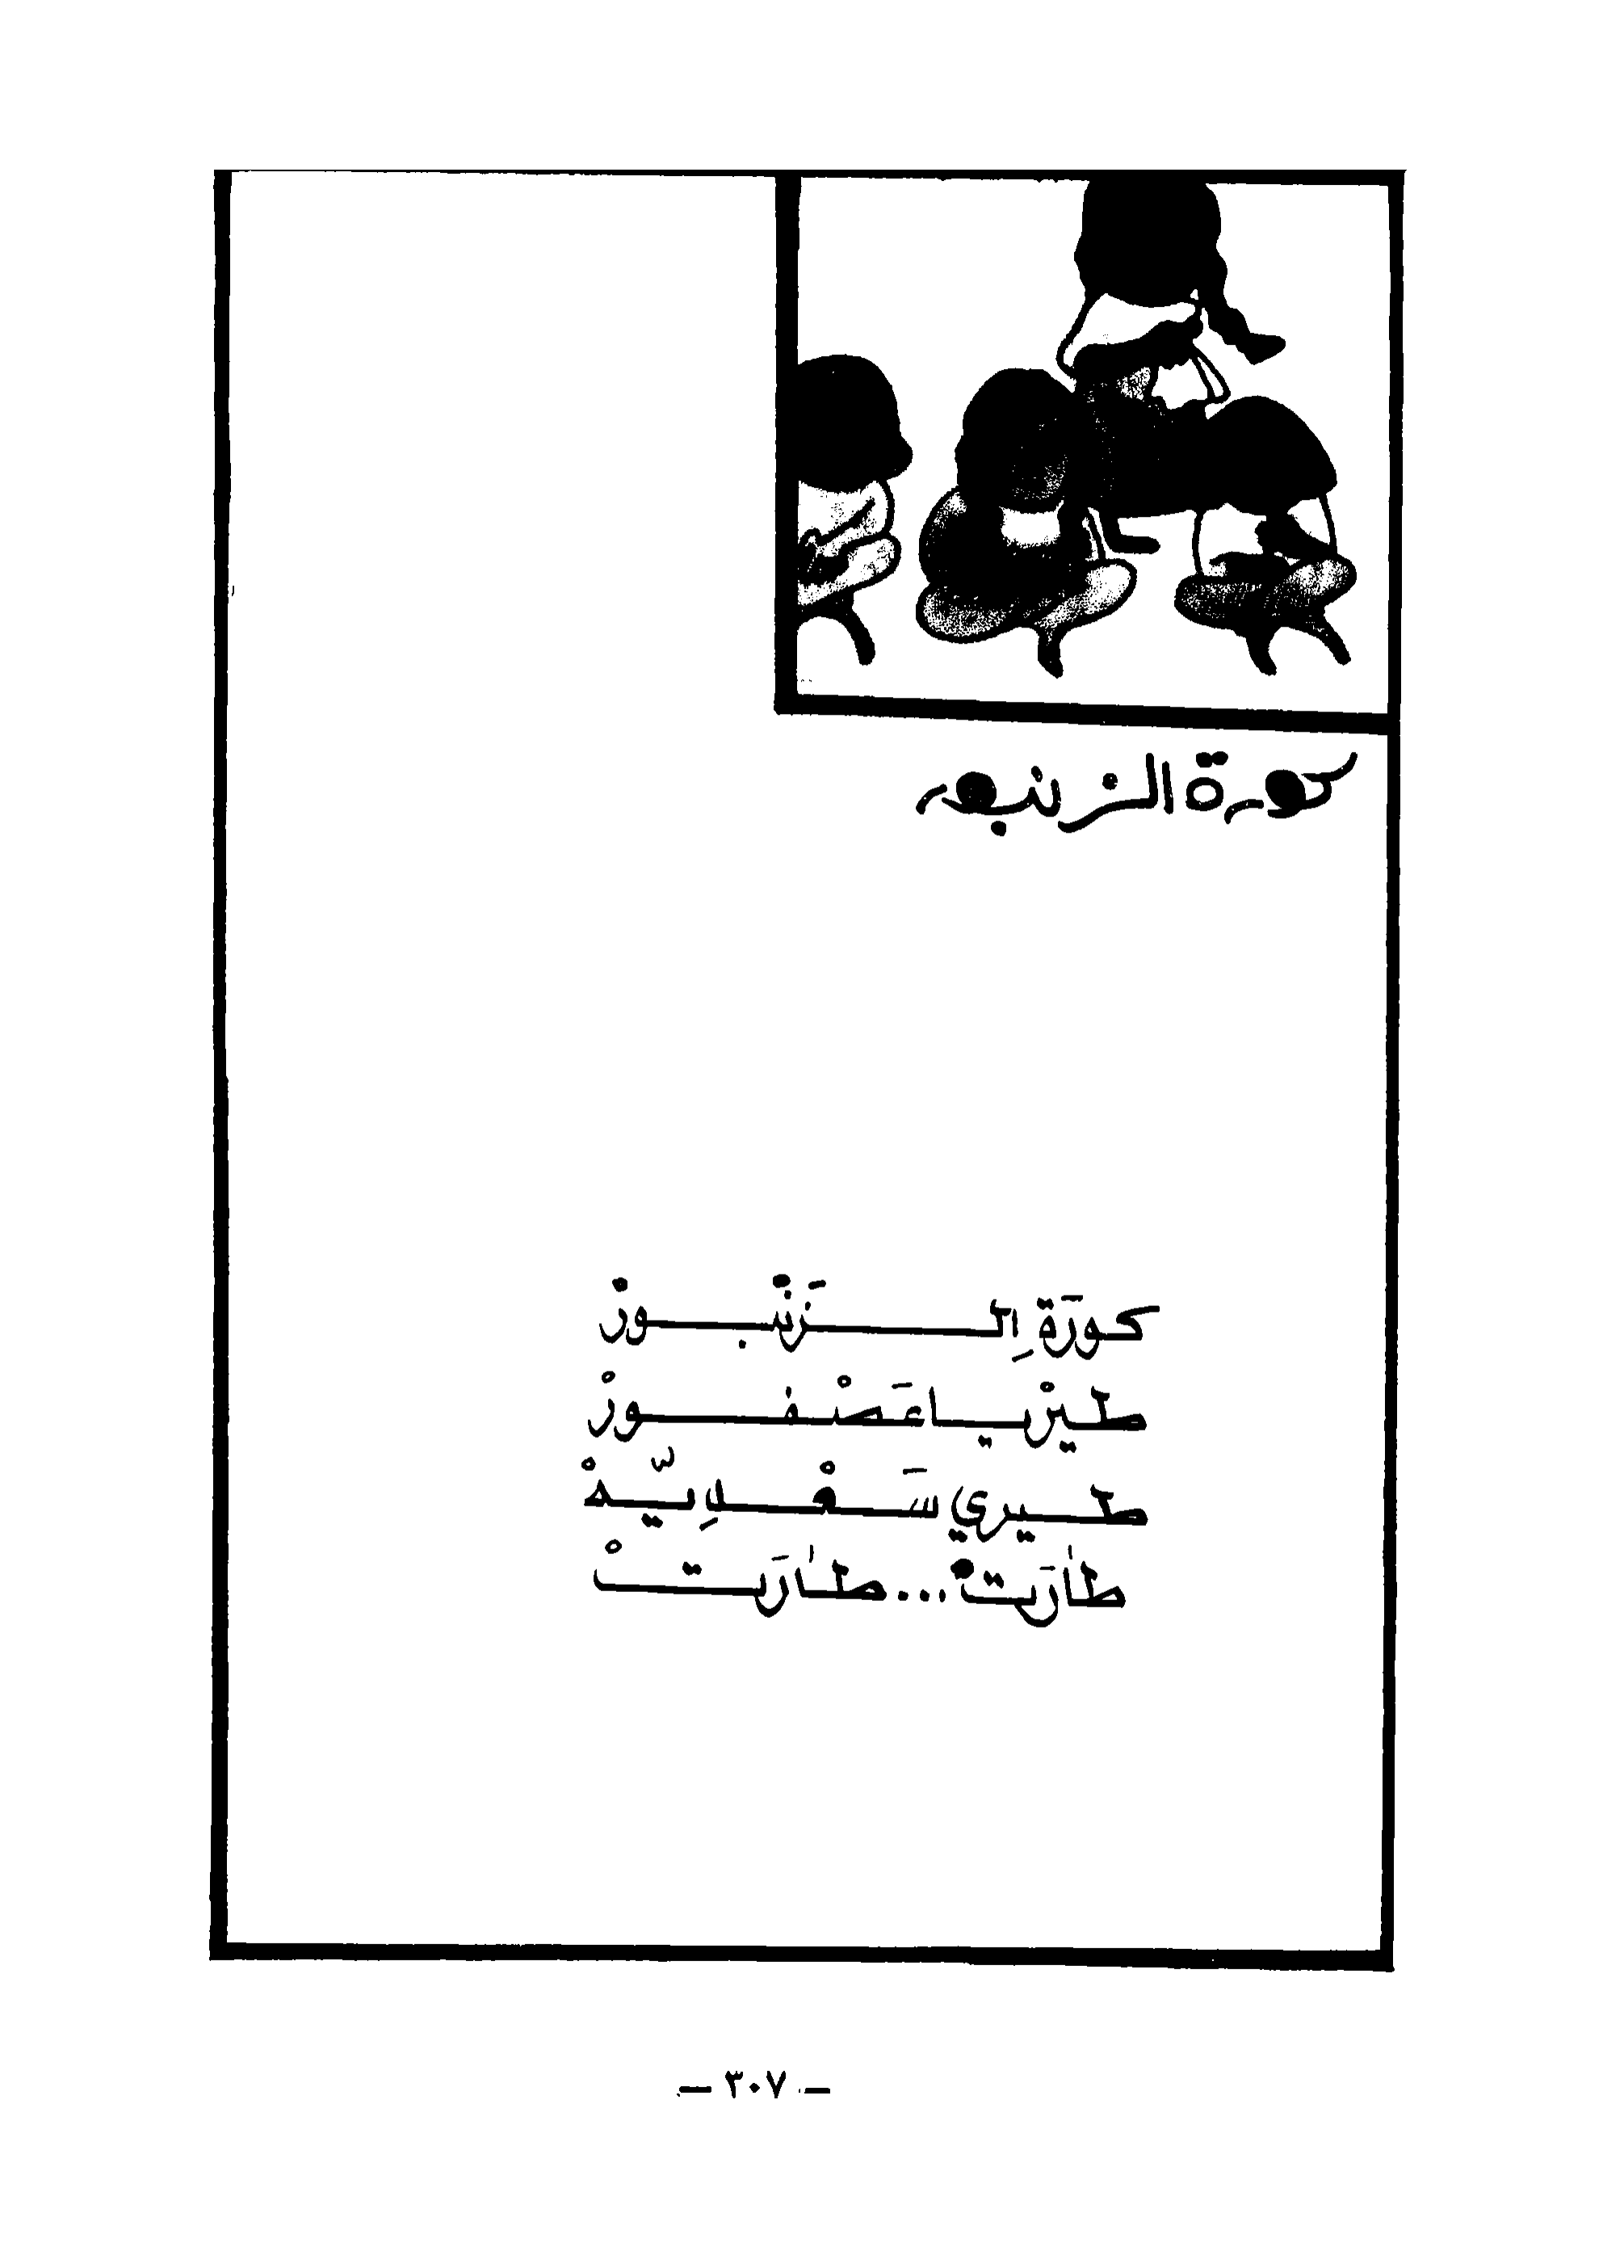 كورة الزنبور
كورَة اِلزَنْبورْ
طيرْ يا عَصْفورْ
طيري سَعْدِيّهْ
طارَتْ... طارَتْ
— ٣٠٧ —